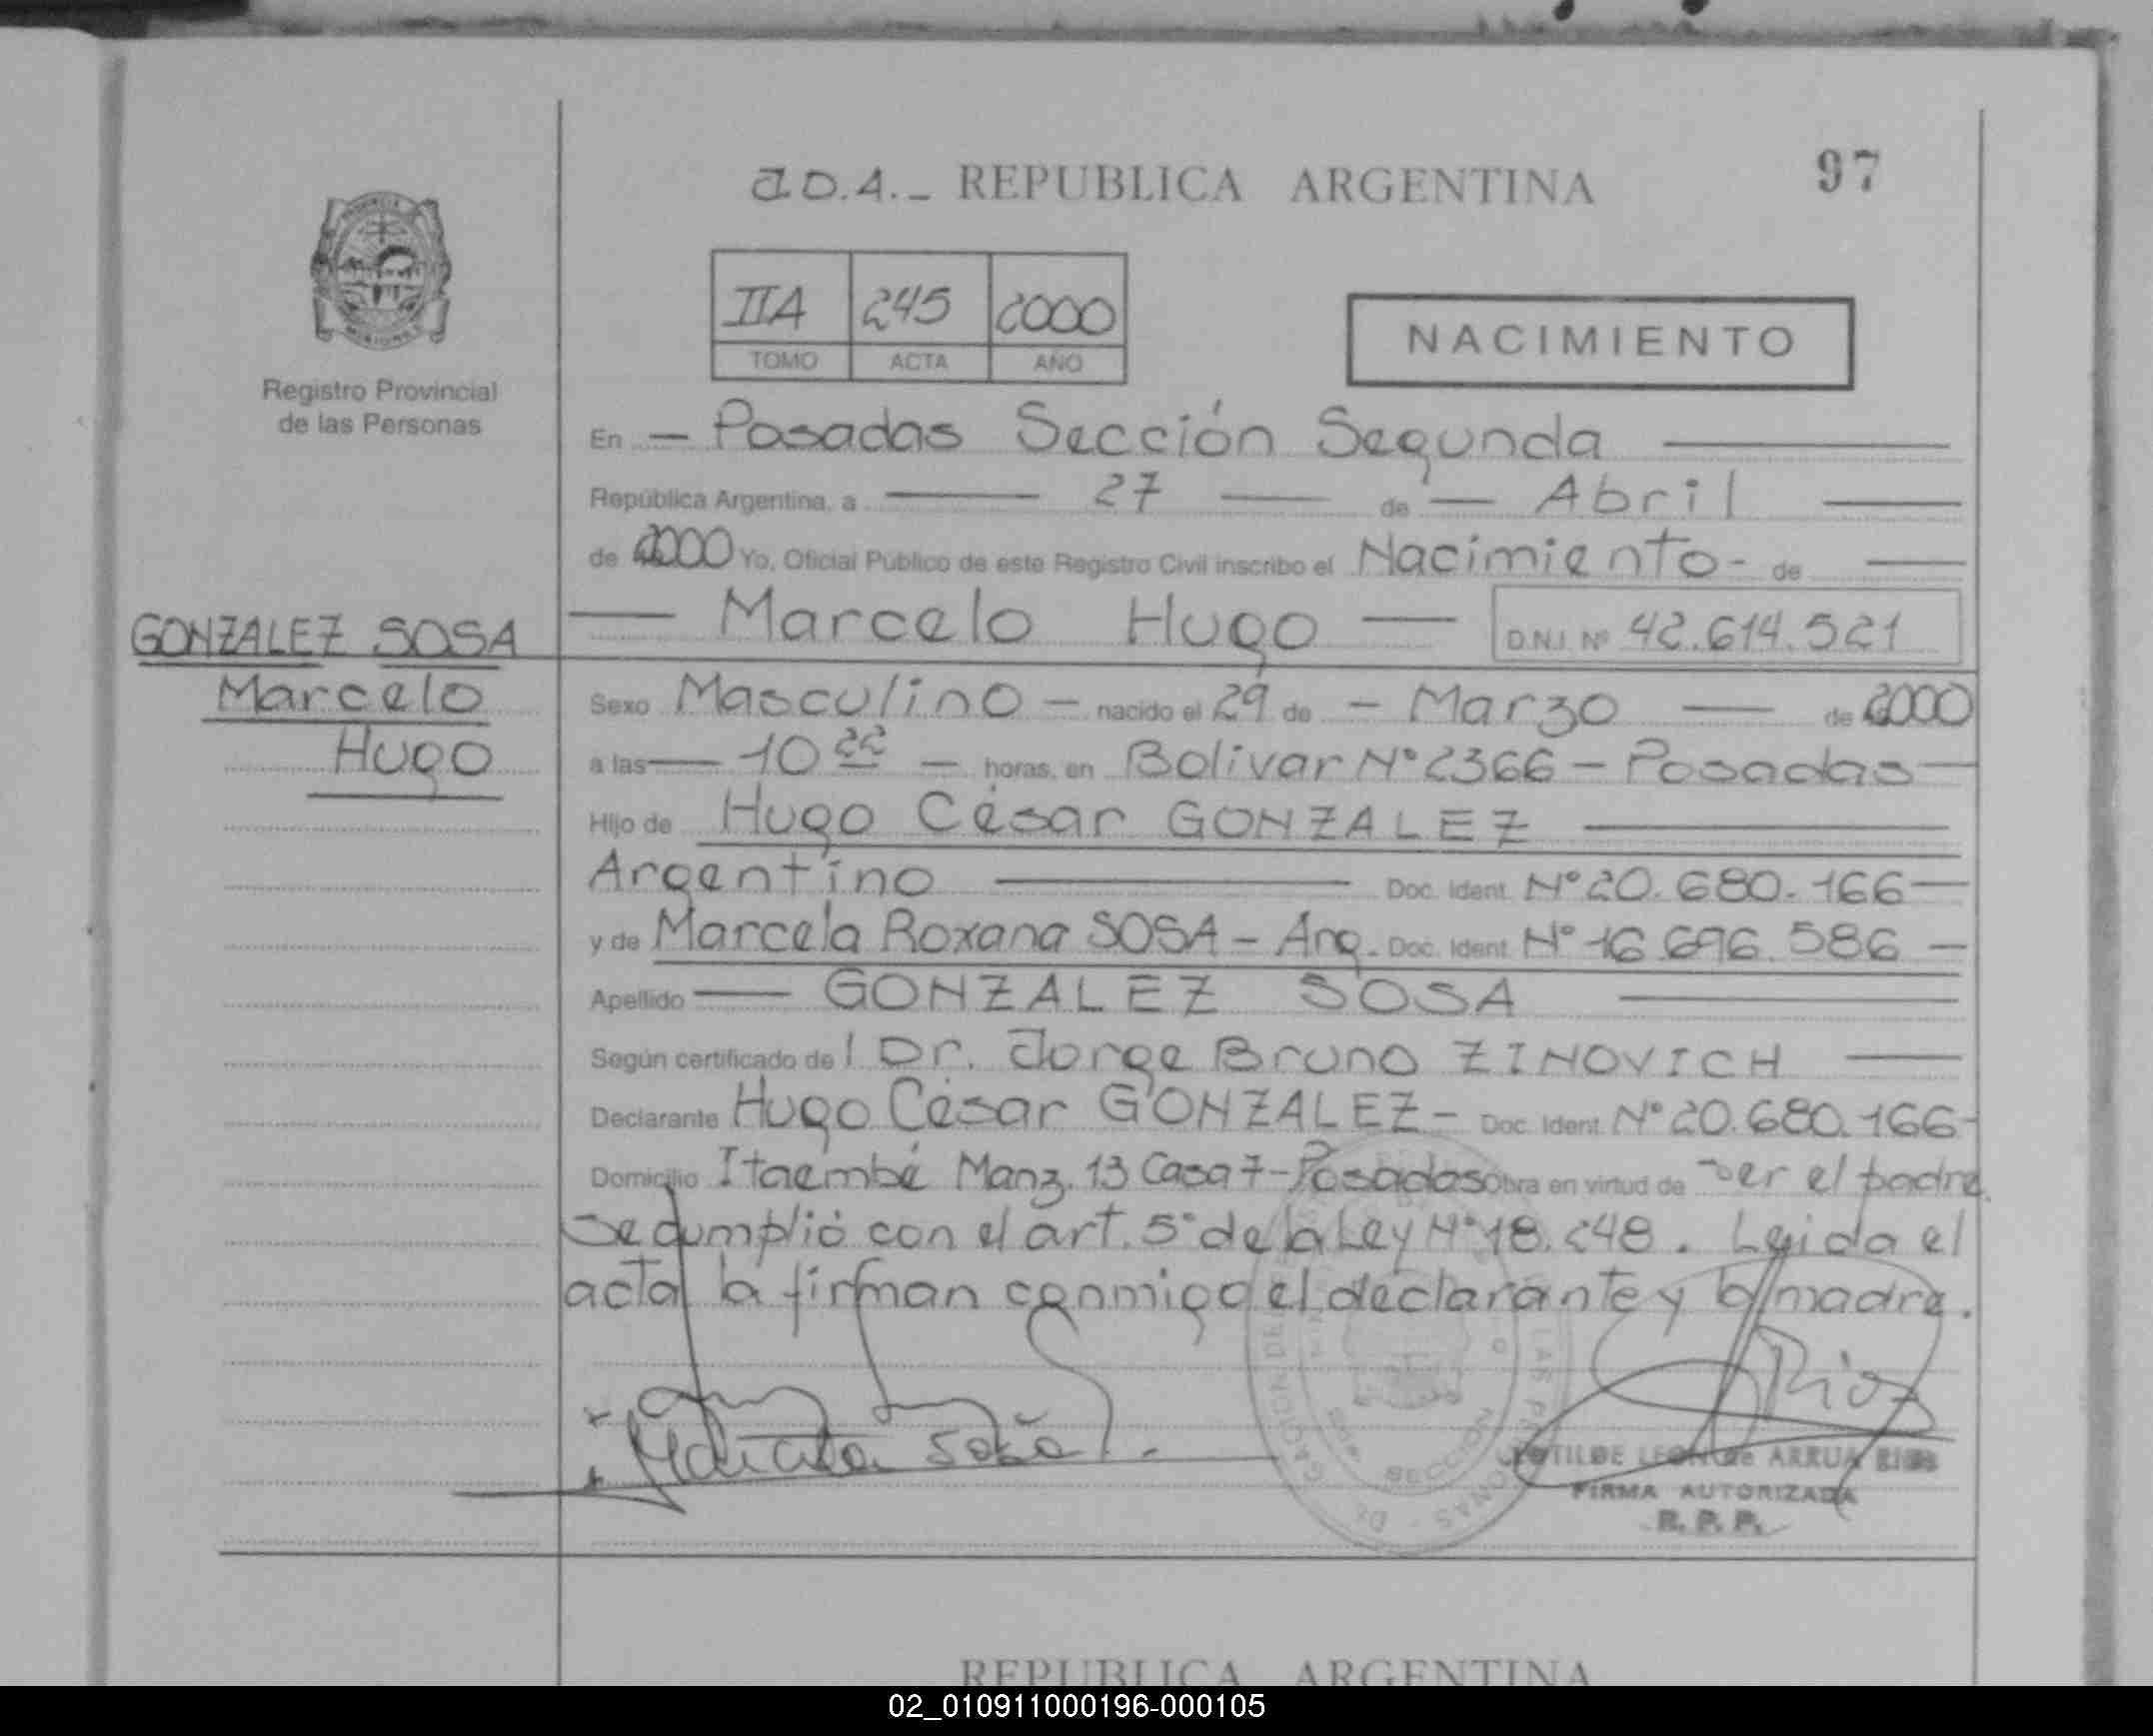 a.D.A.- REPUBLICA ARGENTINA
97
IIA 245 2000
TOMO ACTA AÑO
NACIMIENTO
Registro Provincial
de las Personas
En — Posadas Sección Segunda —
República Argentina, a — 27 — de — Abril —
de 2000 Yo, Oficial Público de este Registro Civil inscribo el Nacimiento - de —
— Marcelo Hugo — D.N.I. Nº 42.614.521
GONZALEZ SOSA
Marcelo
Hugo
Sexo Masculino — nacido el 29 de — Marzo — de 2000
a las — 10 22 — horas, en Bolivar N° 2366 - Posadas —
Hijo de Hugo César GONZALEZ —
Argentino — Doc. Ident. N° 20.680.166 —
y de Marcela Roxana SOSA - Arg. Doc. Ident. N° 16.696.586 —
Apellido — GONZALEZ SOSA —
Según certificado de l Dr. Jorge Bruno ZINOVICH —
Declarante Hugo César GONZALEZ - Doc. Ident. N° 20.680.166 -
Domicilio Itaembé Manz. 13 Casa 7 - Posadas Obra en virtud de ser el padre.
Se cumplió con el art. 5° de la Ley N° 18.248. Leida el
acta la firman conmigo el declarante y la madre.
Marcela Sosa
Rios
CLOTILDE LEON de ARRUA RIOS
FIRMA AUTORIZADA
R. P. P.
REPUBLICA ARGENTINA
02_010911000196-000105